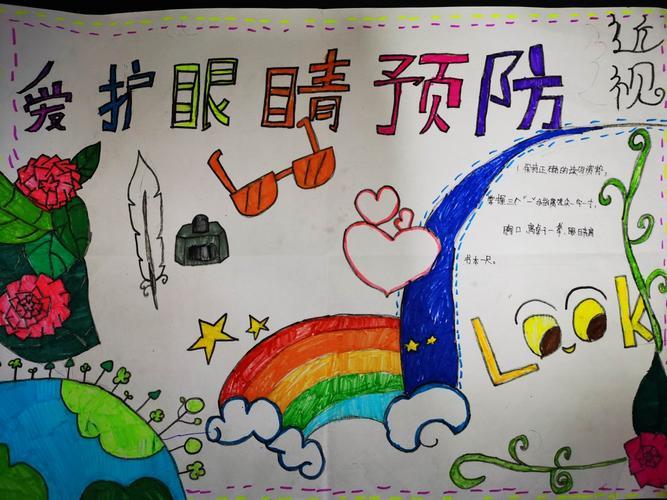 爱护眼睛预防近视
1 保持正确的读写姿势,
掌握三个"一"的距离
胸口离桌子一拳,眼目距离
书本一尺。
Look